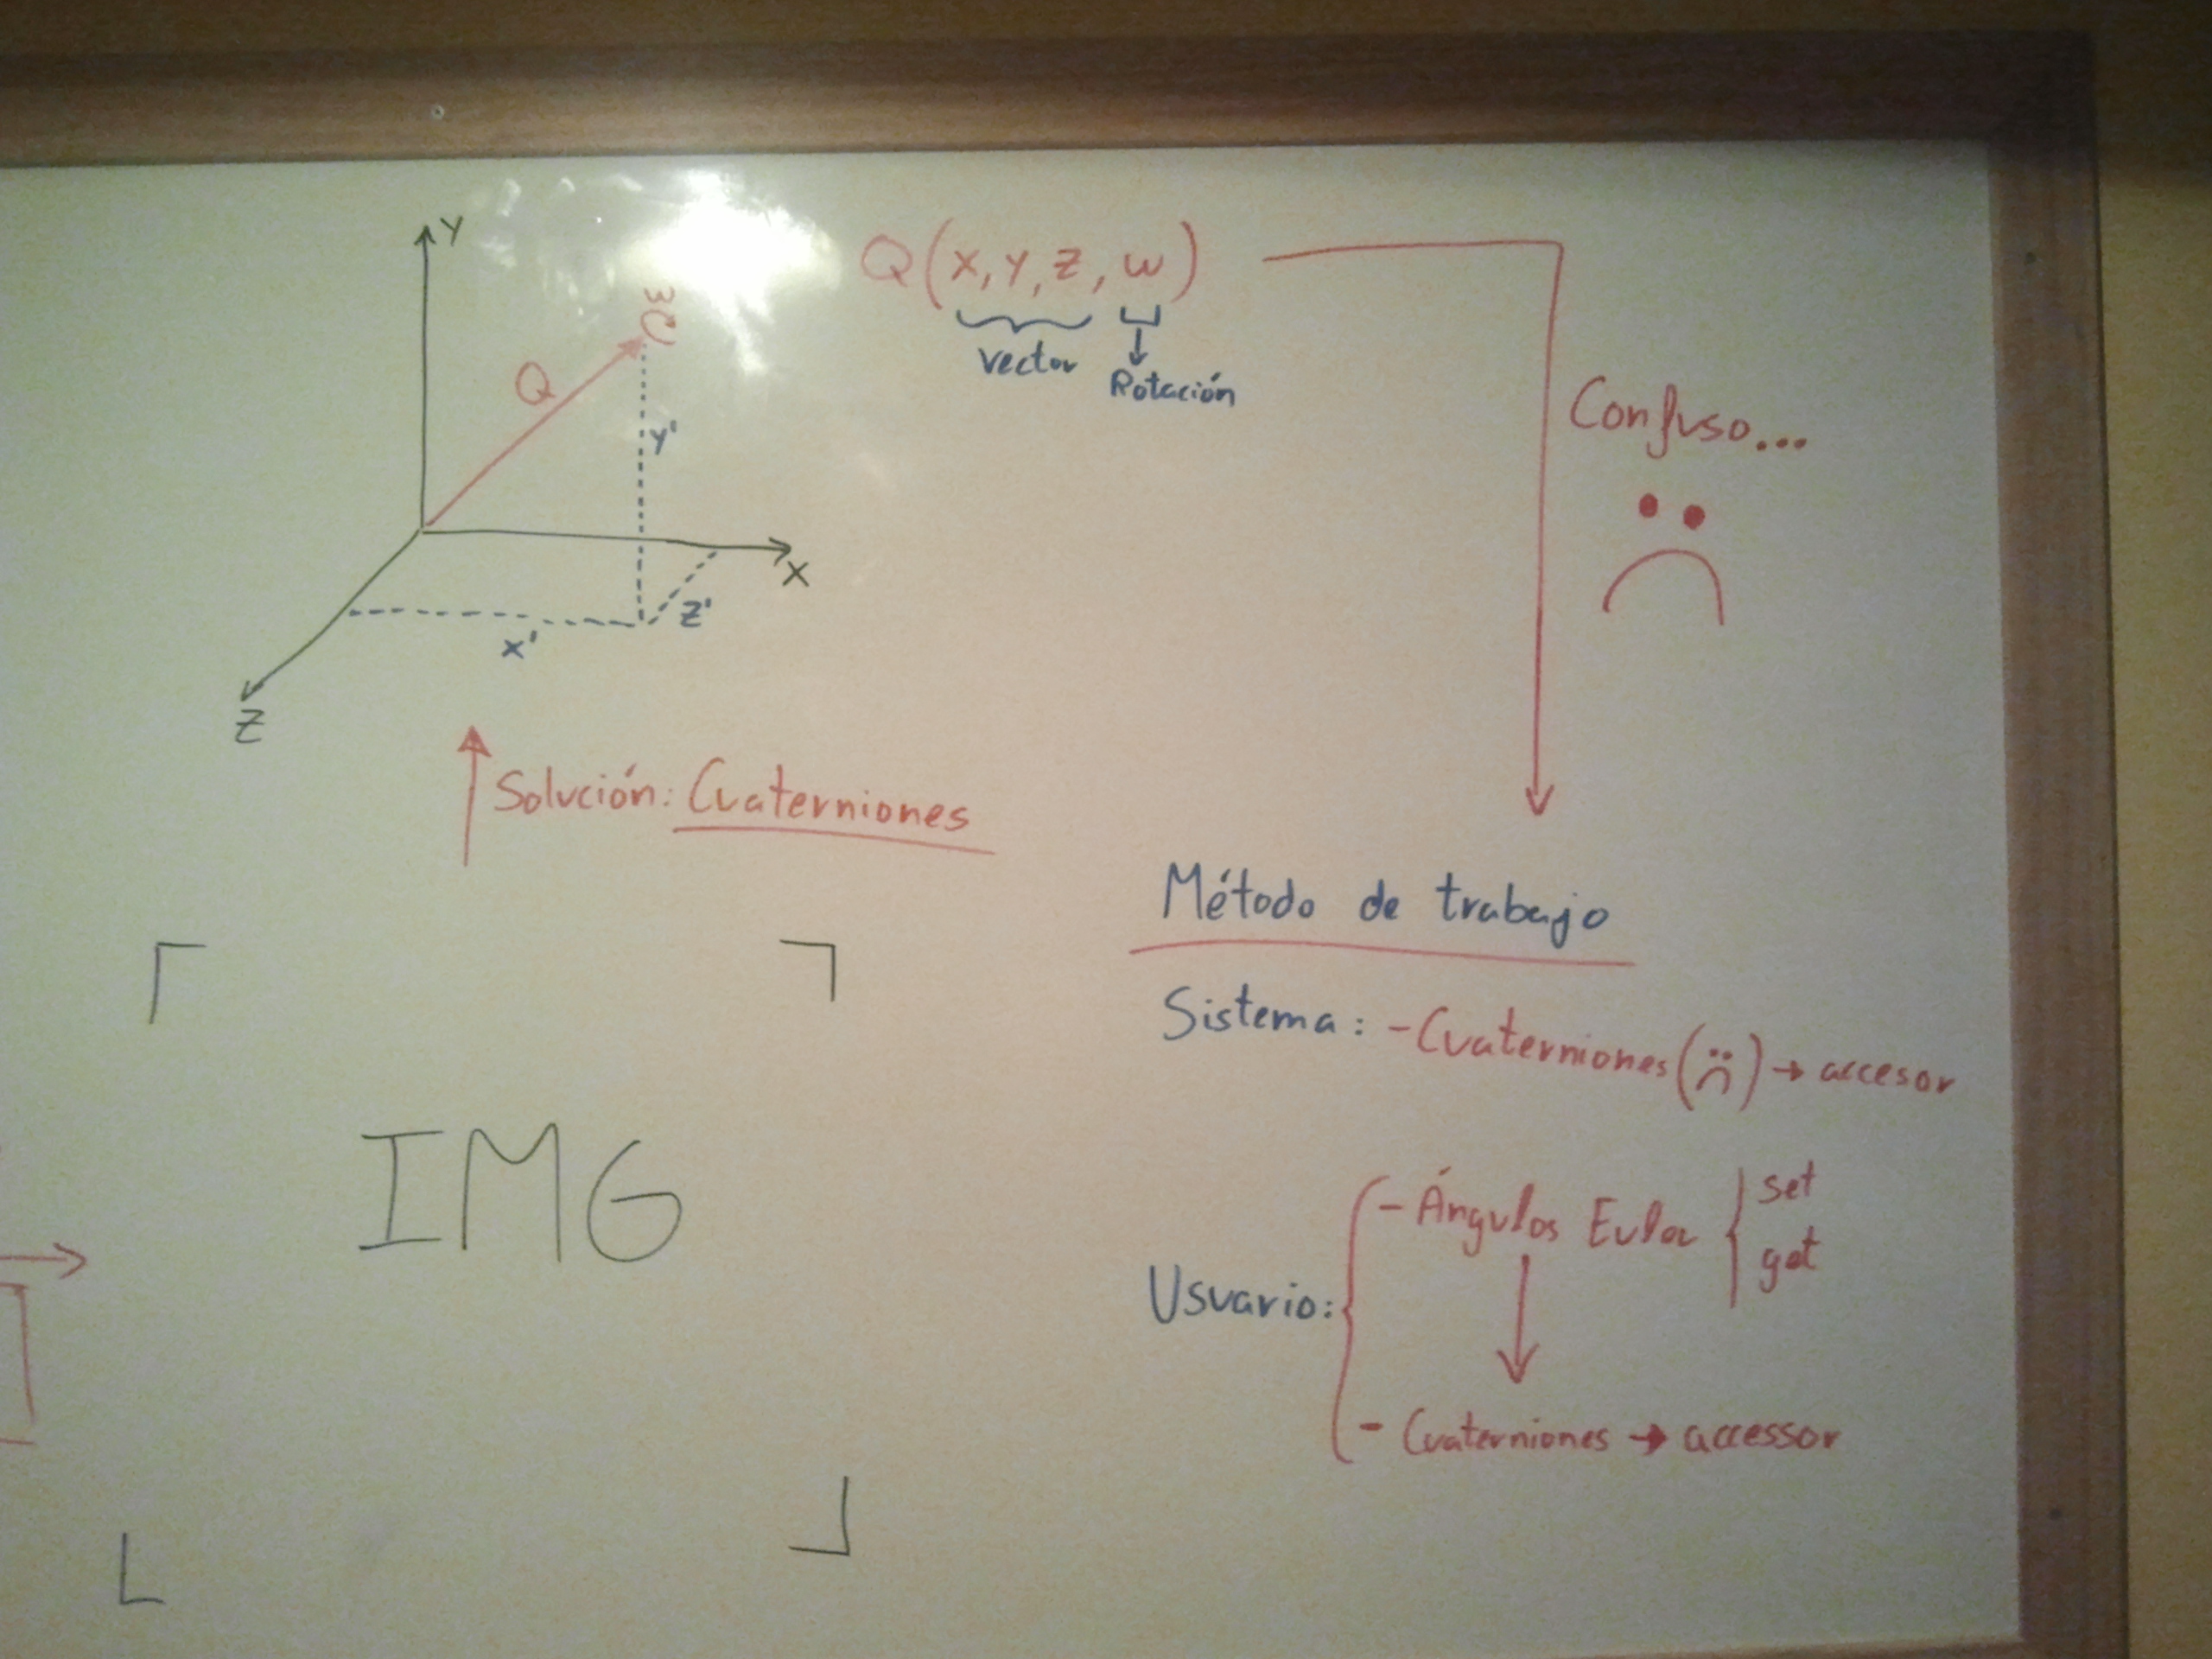 Y
Q
ω
y'
X
z'
x'
Z
Q(x, y, z, w)
Vector
Rotación
Confuso...
Solución: Cuaterniones
IMG
Método de trabajo
Sistema: - Cuaterniones ( ) → accesor
Usuario:
- Ángulos Euler
set
get
- Cuaterniones → accessor